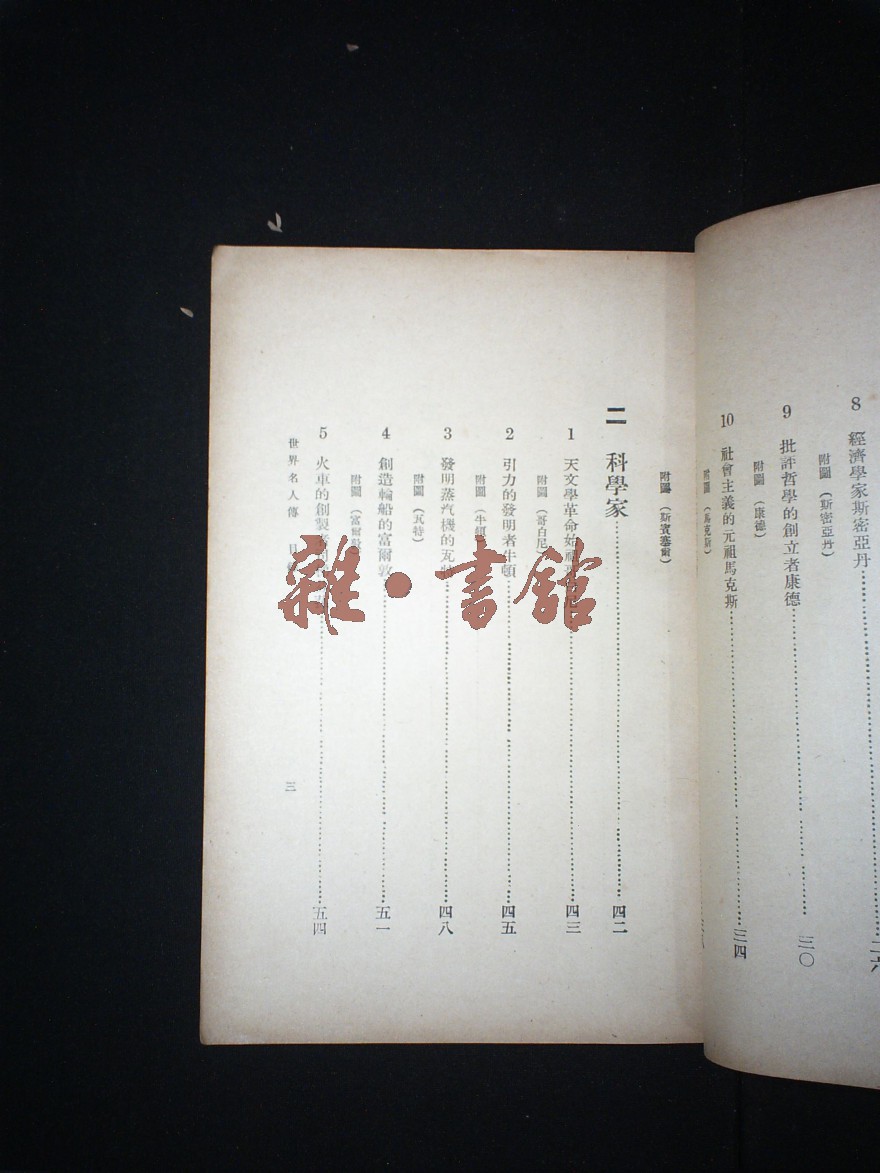 8 經濟學家斯密亞丹 二六
附圖(斯密亞丹)
9 批評哲學的創立者康德 三〇
附圖(康德)
10 社會主義的元祖馬克斯 三四
附圖(馬克斯)
附圖(斯賓塞爾)
二 科學家 四二
1 天文學革命始祖 四三
附圖(哥白尼)
2 引力的發明者牛頓 四五
附圖(牛頓)
3 發明蒸汽機的瓦特 四八
附圖(瓦特)
4 創造輪船的富爾敦 五一
附圖(富爾敦)
5 火車的創製者 五四
世界名人傳 目
三
雜·書館